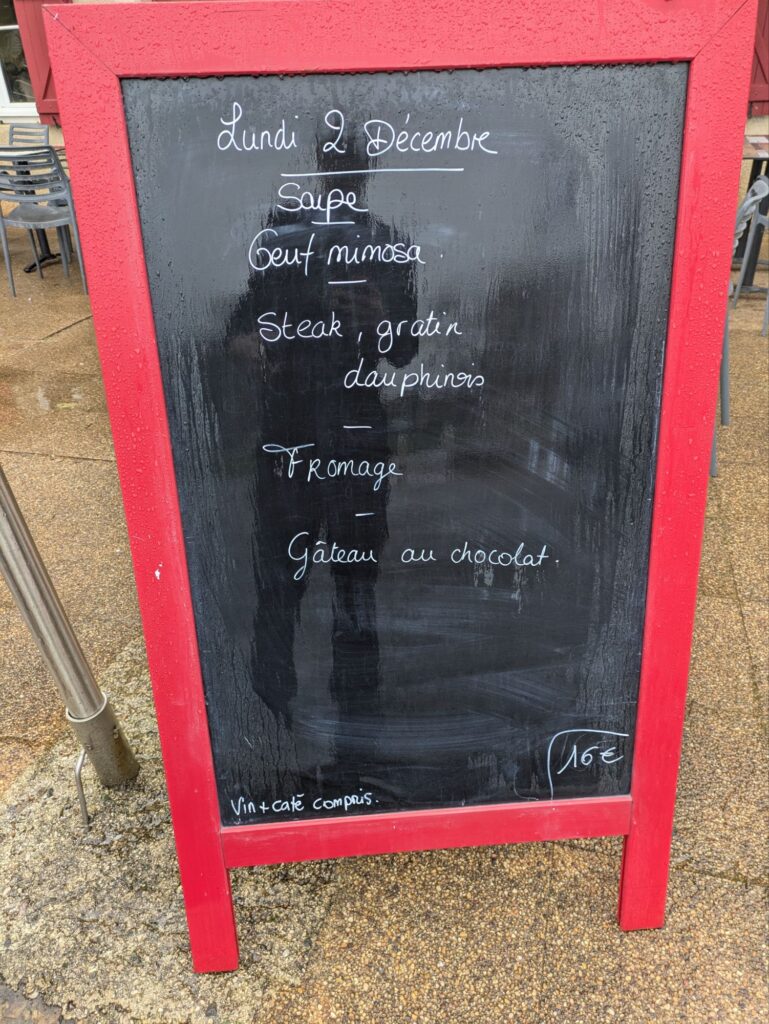 Lundi 2 Décembre
Soupe
Oeuf mimosa.
Steak, gratin
dauphinois
Fromage
Gâteau au chocolat.
16€
Vin + café compris.